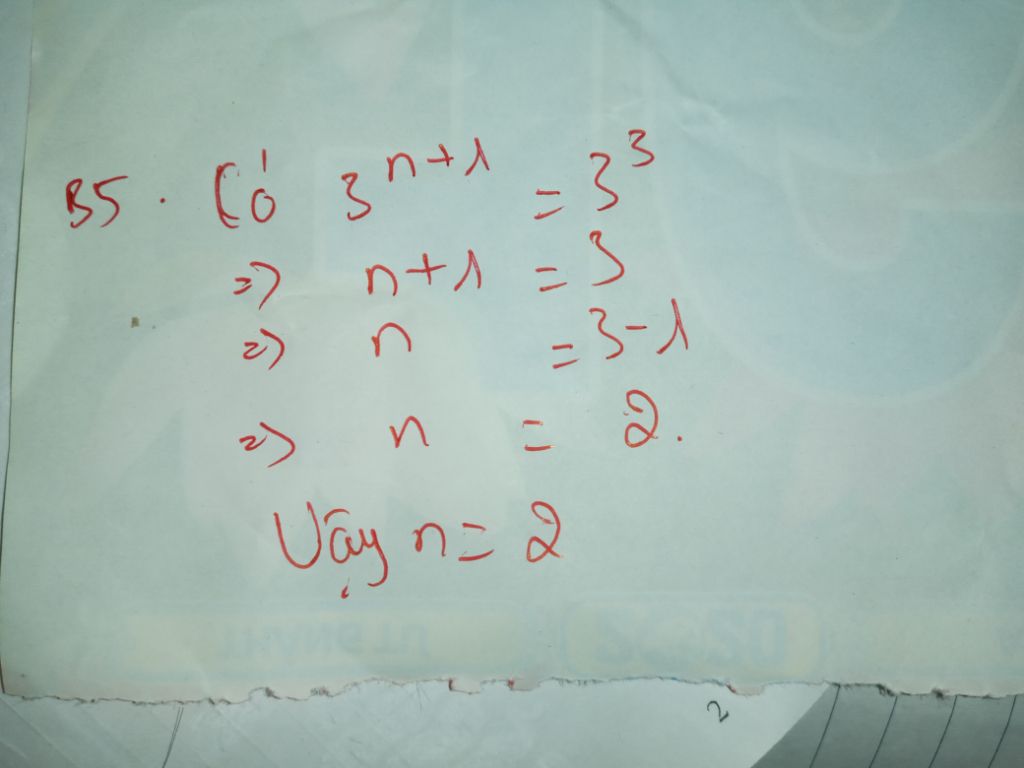 B5. Có 3^{n+1} = 3^3
=> n+1 = 3
=> n = 3-1
=> n = 2.
Vậy n = 2
2